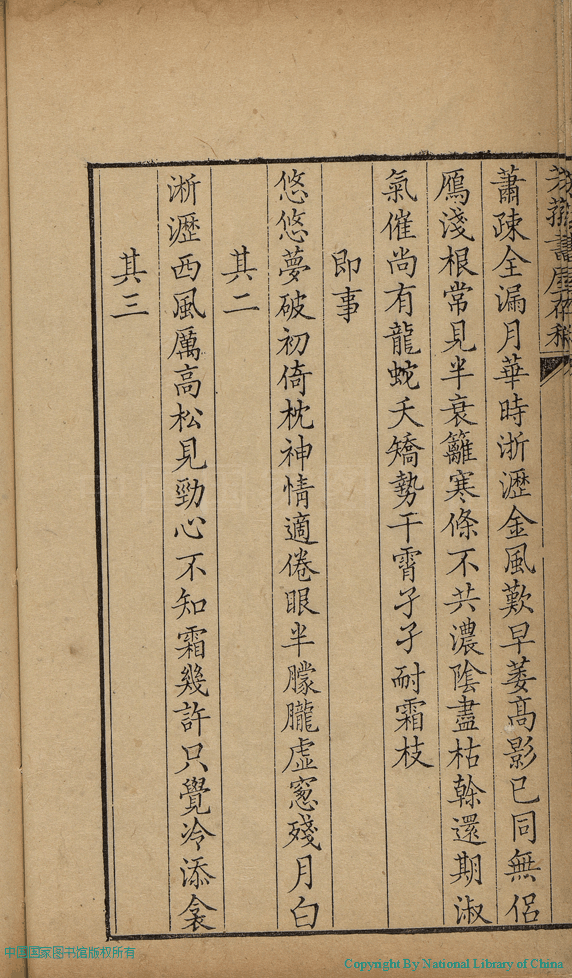 蕭疎全漏月華時浙瀝金風歎早萎髙影已同無侣
鴈淺根常見半衰籬寒條不共濃陰盡枯榦還期淑
氣催尚有龍蛇夭矯勢干霄孑孑耐霜枝
即事
悠悠夢破初倚枕神情適倦眼半朦朧虛窻殘月白
其二
淅瀝西風厲高松見勁心不知霜幾許只覺冷添衾
其三
中国国家图书馆版权所有
Copyright By National Library of China